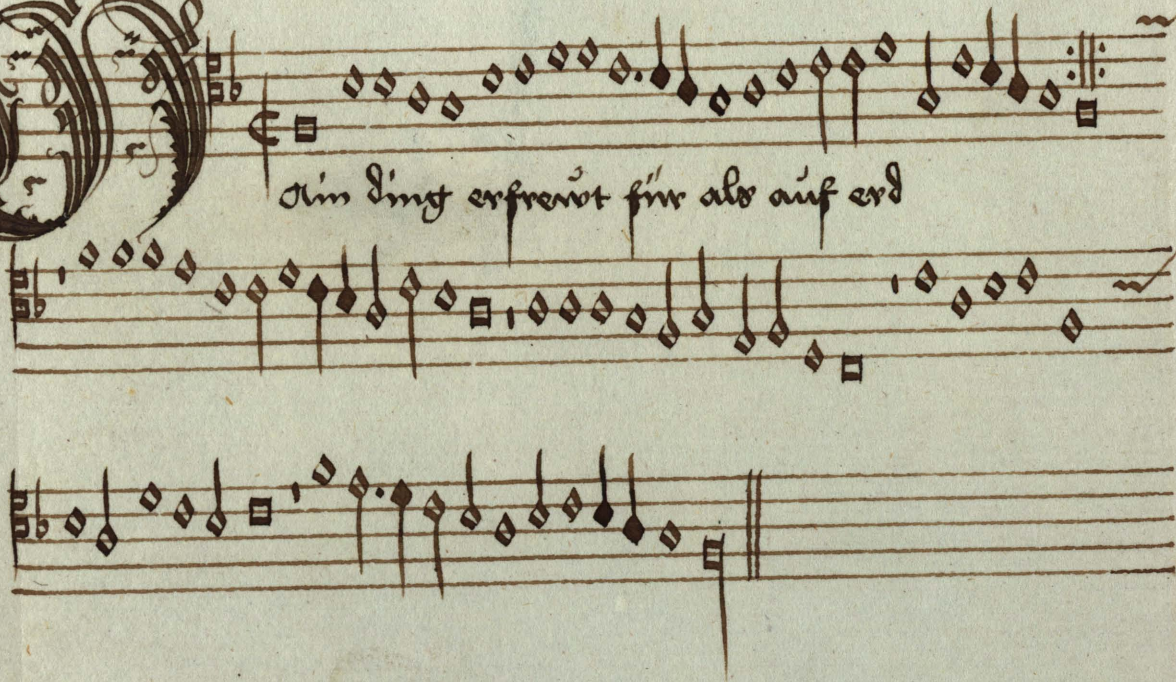 Ain ding erfrewt für als auf erd